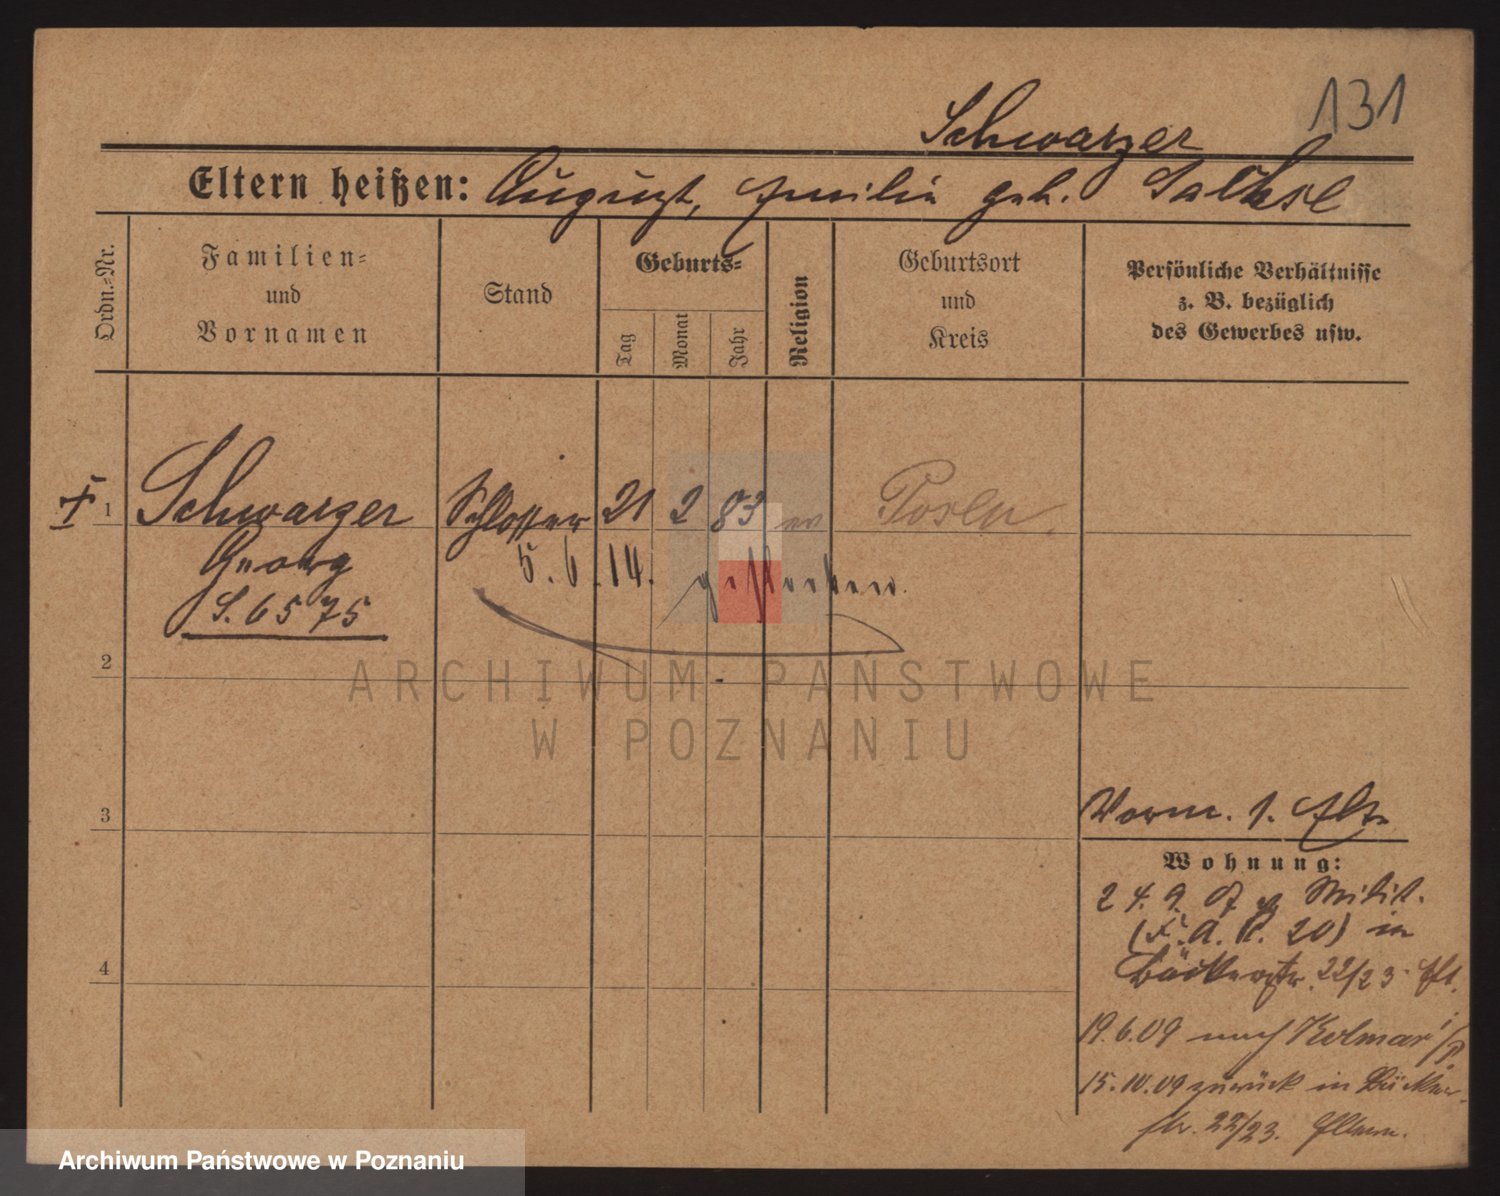 131
Schwarzer
Eltern heißen: August, Emilie geb. Sachse
Ordn.-Nr.
Familien-
und
Vornamen
Stand
Geburts-
Tag
Monat
Jahr
Religion
Geburtsort
und
Kreis
Persönliche Verhältnisse
z. B. bezüglich
des Gewerbes usw.
1 Schwarzer Schlosser 21 2 83 ev Posen
Georg
5.6.14. gestorben.
S. 6575
2
ARCHIWUM PAŃSTWOWE
W POZNANIU
3
Vorm. 1. Elt.
Wohnung:
24. 9. 07 v. Milit.
(F. A. R. 20) in
Bäckerstr. 22/23 Elt.
4
19.6.09 nach Kolmar i/P
15.10.09 zurück in Bäcker-
str. 22/23. Eltern.
Archiwum Państwowe w Poznaniu